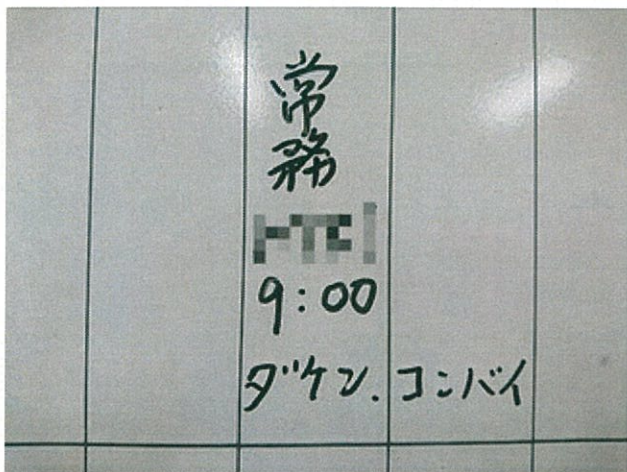 常務
9:00
ダケン.コンバイ